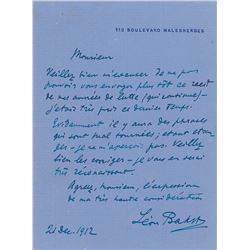 112 BOULEVARD MALESHERBES
Monsieur
Veillez bien m'excuser. Je ne pas
pouvais vous envoyer plus tôt ce récit
de mes années de lutte (qui continue) –
j'étais très pris ce dernier temps.
Evidemment il y a des phrases
qui sont mal tournées; étant
je ne m'aperçois pas. Veillez
bien les corriger – je vous en serai
très reconnaissant.
Agréez, monsieur, l'expression
de ma très haute considération
Léon Bakst
21 Dec. 1912